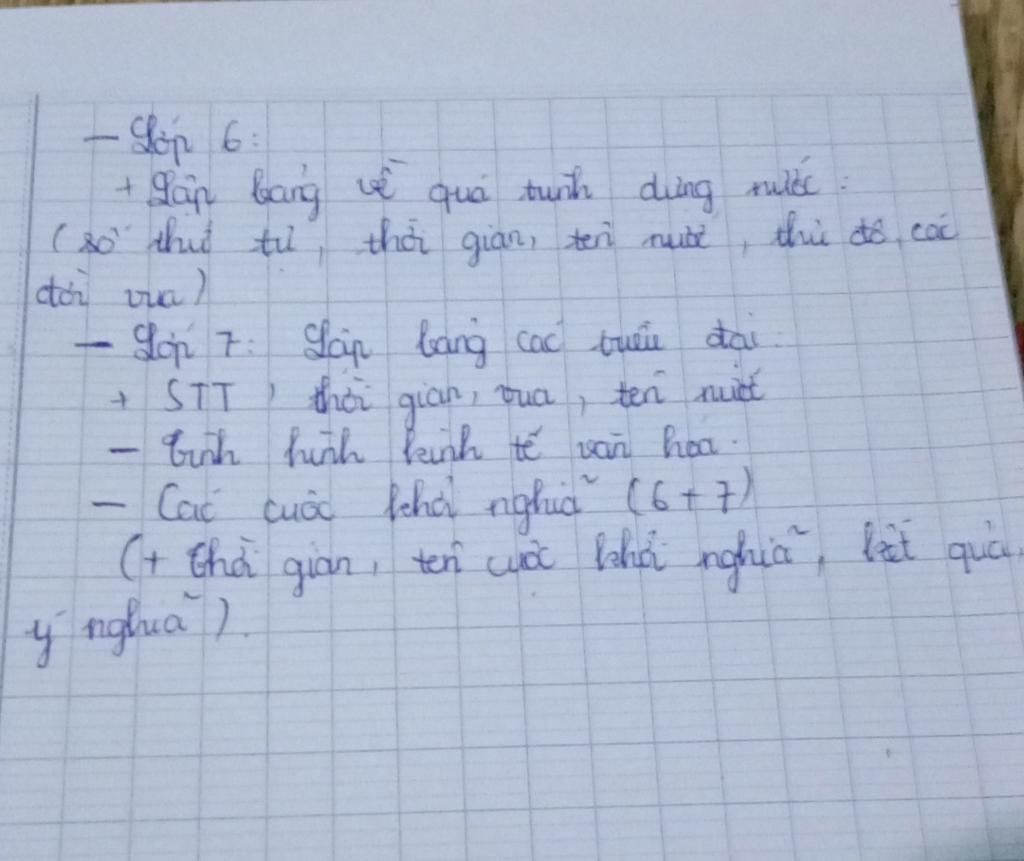 - Lớp 6:
+ Lập bảng về quá trình dựng nước:
(số thứ tự, thời gian, tên nước, thủ đô, các
đời vua)
- Lớp 7: Lập bảng các triều đại:
+ STT, thời gian, vua, tên nước
- Tình hình kinh tế văn hoá.
- Các cuộc khởi nghĩa (6+7)
(+ Thời gian, tên cuộc khởi nghĩa, kết quả,
ý nghĩa).